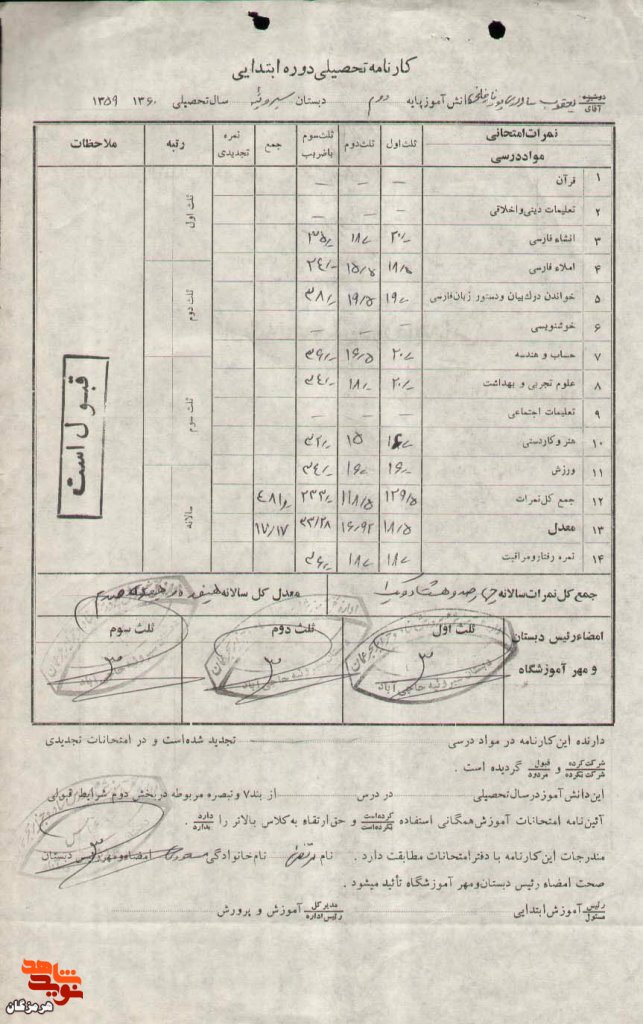 کارنامه تحصیلی دوره ابتدایی
دوشیزه آقای یعقوب دانش آموز پایه دوم دبستان سیروئیه سال تحصیلی ۱۳۶۰ ۱۳۵۹
نمرات امتحانی مواد درسی ثلث اول ثلث دوم ثلث سوم باضریب جمع نمره تجدیدی رتبه ملاحظات
۱ قرآن — — —
۲ تعلیمات دینی و اخلاقی — —
۳ انشاء فارسی ۲۰/- ۱۸/- ۳۵/-
۴ املاء فارسی ۱۸/۵ ۱۵/۵ ۲۴/-
۵ خواندن درک بیان و دستور زبان فارسی ۱۹/- ۱۹/۵ ۳۸/-
۶ خوشنویسی — — —
۷ حساب و هندسه ۲۰/- ۱۶/۵ ۳۶/-
۸ علوم تجربی و بهداشت ۲۰/- ۱۸/- ۳۴/-
۹ تعلیمات اجتماعی — — —
۱۰ هنر و کاردستی ۱۵ ۳۲/-
۱۱ ورزش ۱۶/- ۱۶/- ۳۴/-
۱۲ جمع کل نمرات ۱۲۹/۵ ۱۱۸/۵ ۲۳۳/- ۴۸۱/-
۱۳ معدل ۱۸/۵ ۱۶/۹۲ ۳۳/۲۸ ۱۷/۱۷
۱۴ نمره رفتار و مراقبت ۱۸/- ۱۸/- ۳۶/-
ثلث اول
ثلث دوم
ثلث سوم
سالانه
قبول است
جمع کل نمرات سالانه چهارصد و هشتاد و یک معدل کل سالانه هفده و هفده صدم
امضاء رئیس دبستان و مهر آموزشگاه ثلث اول ثلث دوم ثلث سوم
دبستان سیروئیه حاجی آباد
سیروئیه حاجی آباد
سیروئیه حاجی آباد
دارنده این کارنامه در مواد درسی تجدید شده است و در امتحانات تجدیدی
شرکت کرده شرکت نکرده و قبول مردود گردیده است .
این دانش آموز در سال تحصیلی در درس از بند ۷ و تبصره مربوطه در بخش دوم شرایط قبولی
آئین نامه امتحانات آموزش همگانی استفاده کرده است نکرده است و حق ارتقاء به کلاس بالاتر را دارد ندارد .
مندرجات این کارنامه با دفتر امتحانات مطابقت دارد . نام نام خانوادگی امضاء و مهر رئیس دبستان
صحت امضاء رئیس دبستان و مهر آموزشگاه تأئید میشود .
رئیس مسئول آموزش ابتدایی مدیر کل رئیس اداره آموزش و پرورش
نوید شاهد
هرمزگان